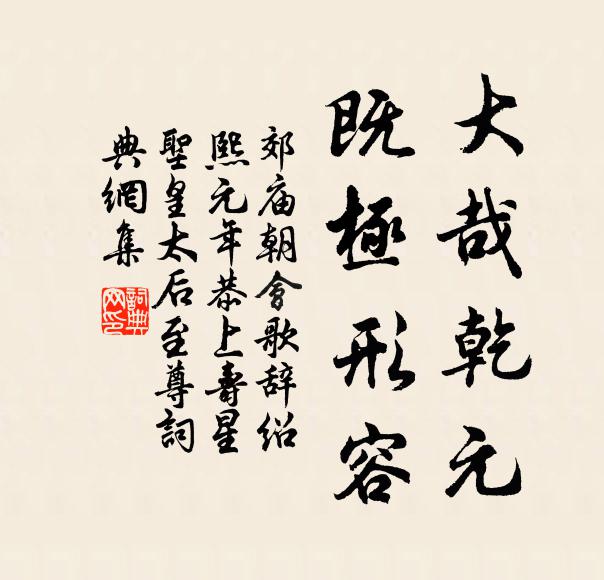 大哉乾元
既極形容
郊庙朝會歌辞绍
熙元年恭上壽星
聖皇太后至尊詞
典網集
詞典
网印